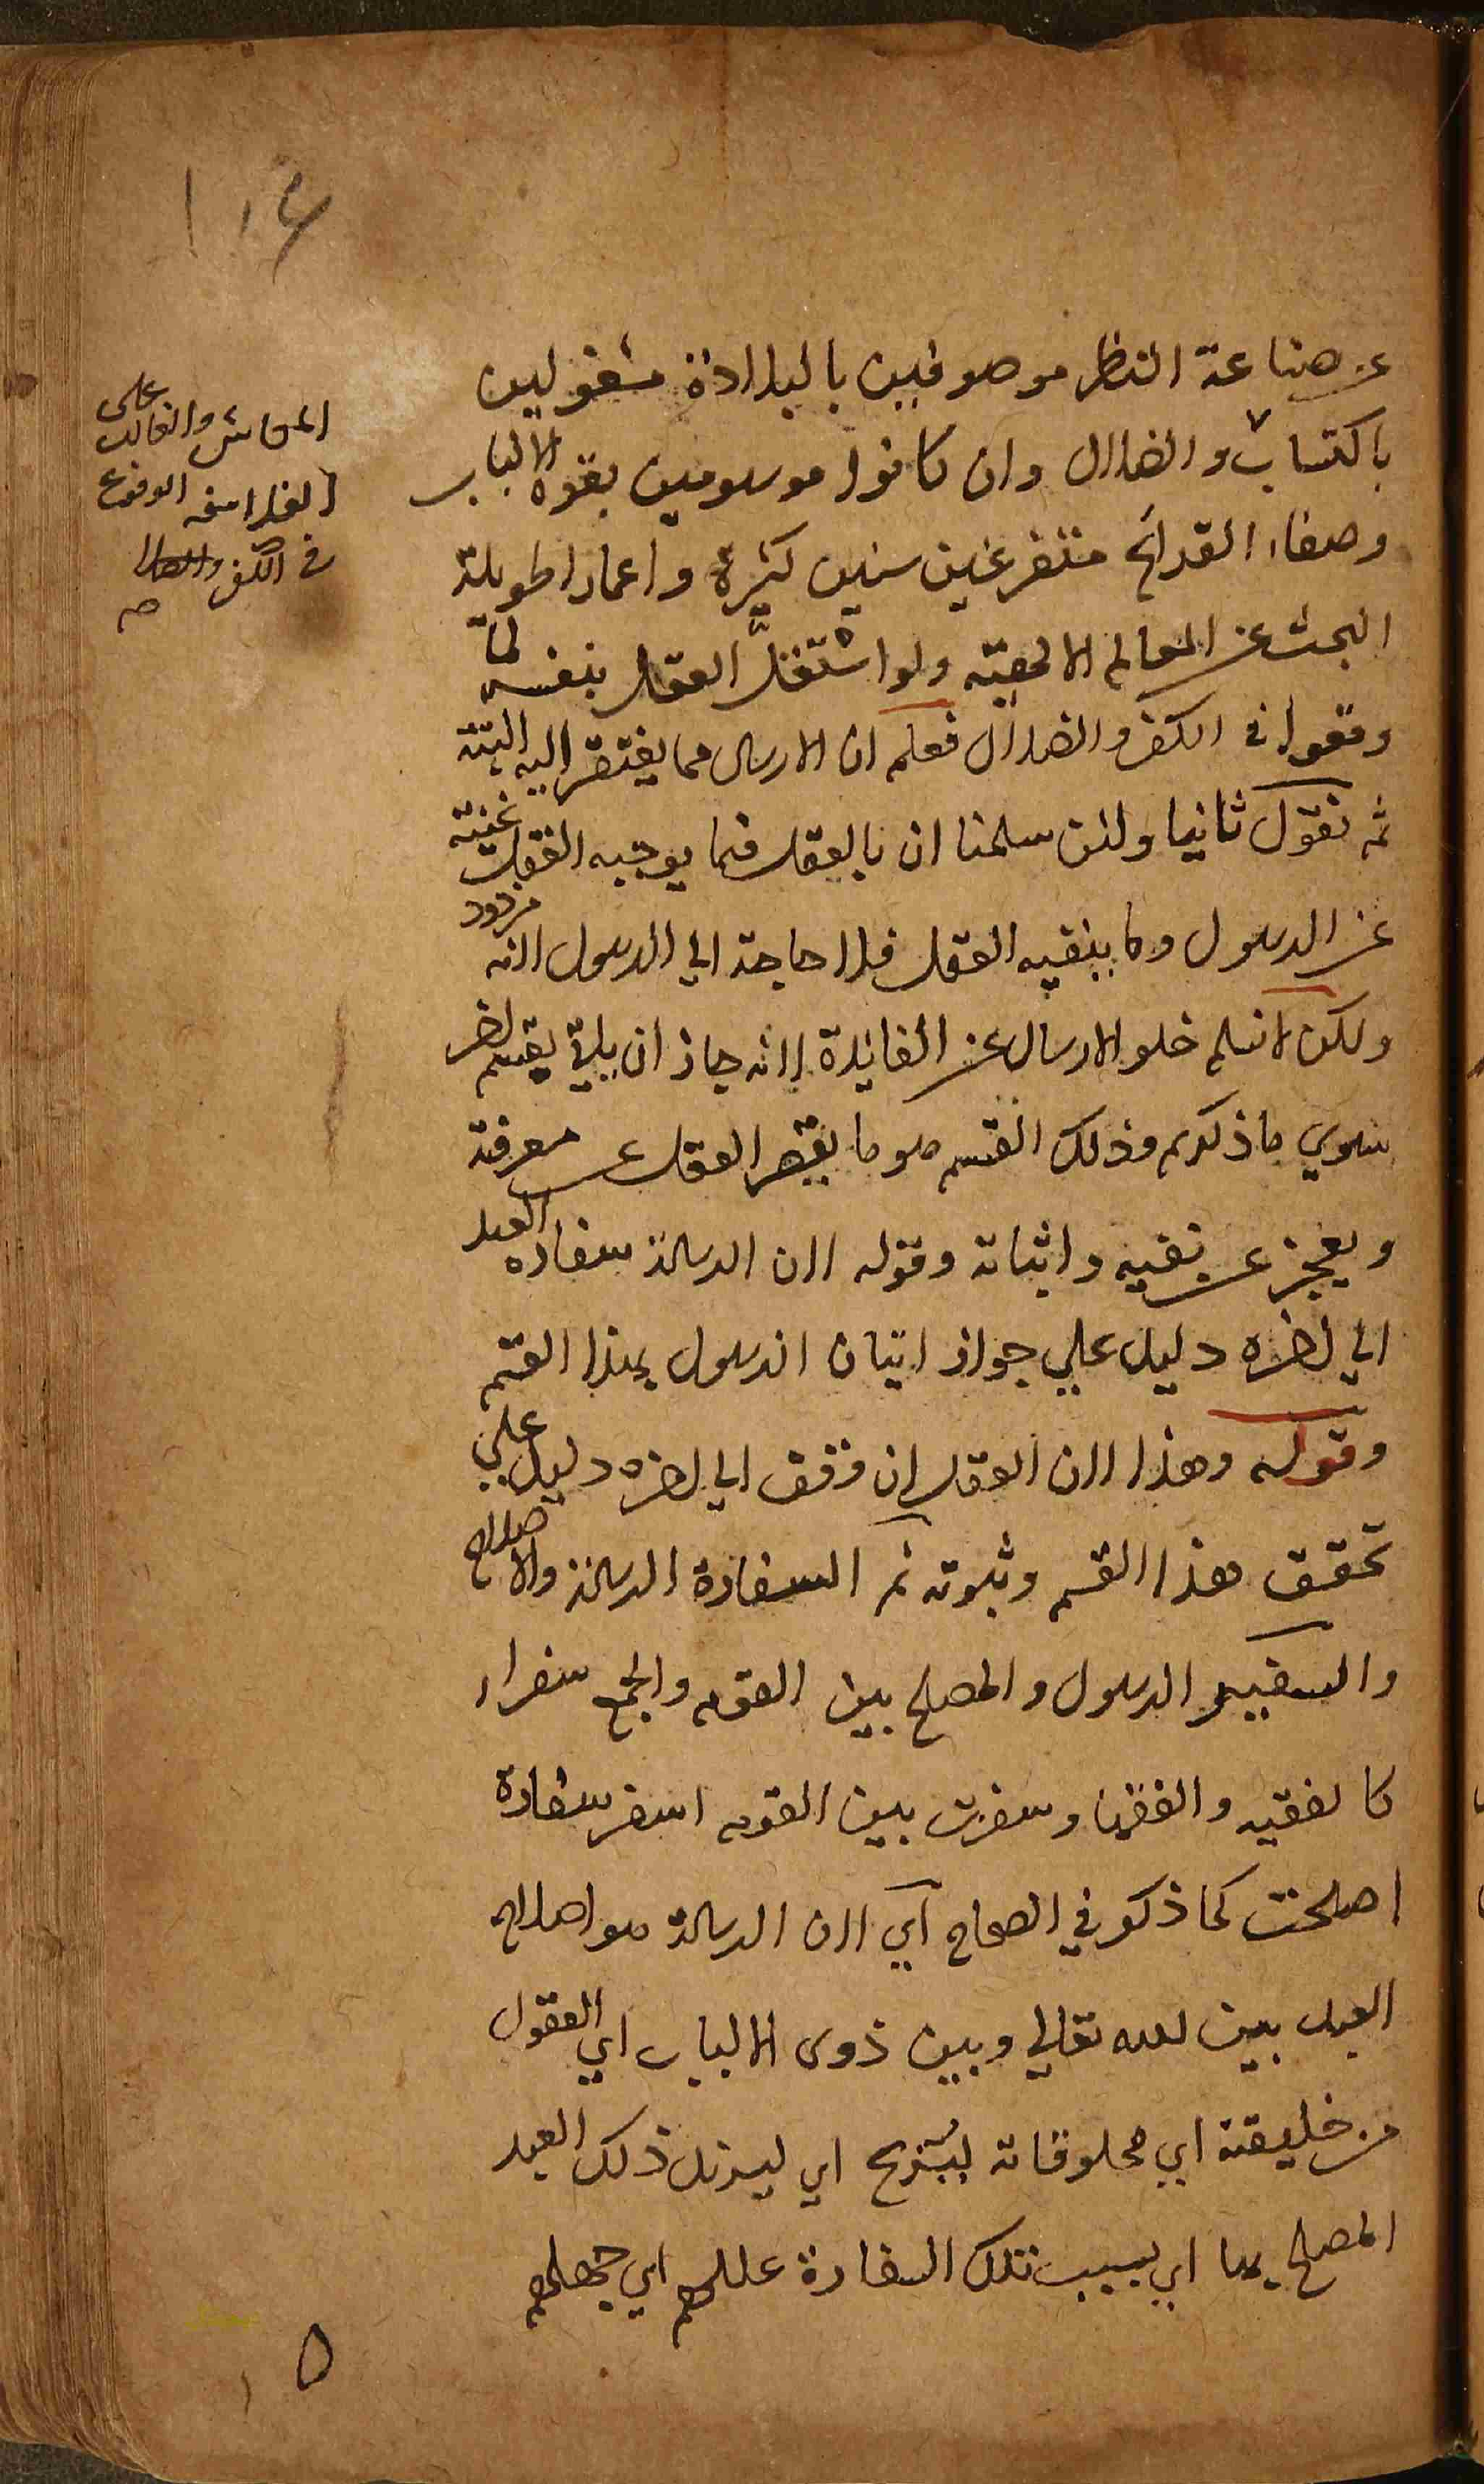 ١٠٤
عن صناعة النظر موصوفين بالبلادة مشغولين
باكتساب والضلال وان كانوا موسومين بقوة الالباب
وصفاء القرائح متفرغين سنين كثيرة واعمارا طويلة
البحث عن المعالم الالهية ولو اشتغل العقل بنفسه لما
وقعوا في الكفر والضلال فعلم ان الارسال مما يفتقر اليه البتة
ثم نقول ثانيا ولئن سلمنا ان بالعقل فيما يوجبه العقل غنية
عن الرسول وما ينفيه العقل فلا حاجة الي الرسول لانه مردود
ولكن لا نسلم خلو الارسال عن الفايدة لانه جاز ان يأتي بقسم اخر
سوي ما ذكرتم وذلك القسم هو ما يقصر العقل عن معرفته
ويعجز عن نفيه واثباته وقوله لان الرسالة سفارة العبد
الي اخره دليل علي جواز اتيان الرسول بهذا القسم
وقوله وهذا لان العقل ان وقف الي اخره دليل علي
تحقق هذا القسم وثبوته ثم السفارة الرسالة والاصلاح
والسفير الرسول والمصلح بين القوم والجمع سفراء
كالفقيه والفقها وسفرت بين القوم اسفر سفارة
اصلحت كما ذكر في الصحاح اي لان الرسالة هو اصلاح
العبد بين الله تعالي وبين ذوى الالباب اي العقول
من خليقته اي مخلوقاته ليزيح اي ليزيل ذلك العبد
المصلح بها اي بسبب تلك السفارة عللهم اي جهلهم
المعاش والغالب على
الفلاسفه الوقوع
في الكفر والضلال
صح